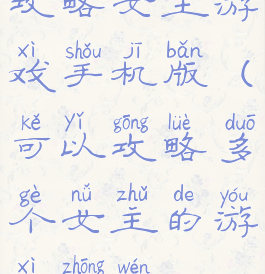 攻略女主游
xì shǒu jī bǎn
戏手机版（
kě yǐ gōng lüè duō
可以攻略多
gè nǚ zhǔ de yóu
个女主的游
xì zhōng wén